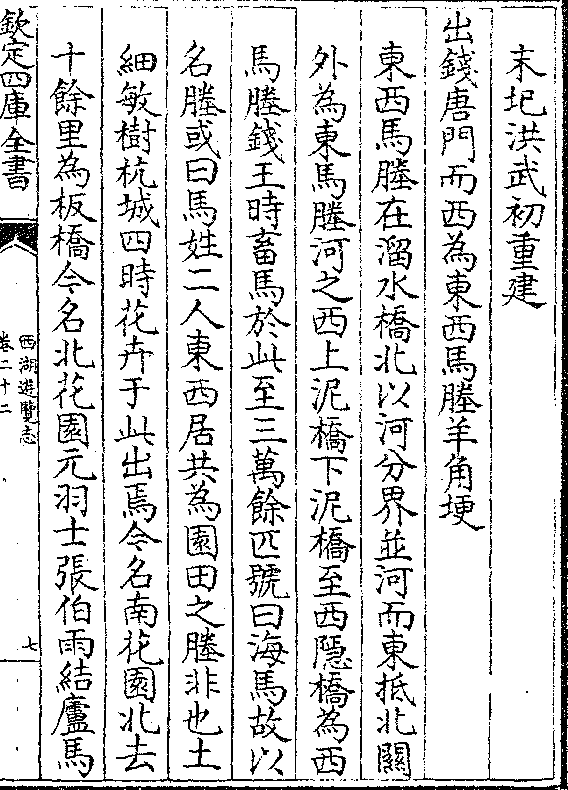 末圯洪武初重建
出錢唐門而西為東西馬塍羊角埂
東西馬塍在溜水橋北以河分界並河而東抵北關
外為東馬塍河之西上泥橋下泥橋至西隱橋為西
馬塍錢王時畜馬於此至三萬餘匹號曰海馬故以
名塍或曰馬姓二人東西居共為園田之塍非也土
細敏樹杭城四時花卉于此出焉今名南花園北去
十餘里為板橋今名北花園元羽士張伯雨結廬馬
欽定四庫全書
西湖遊覽志
卷二十二
七